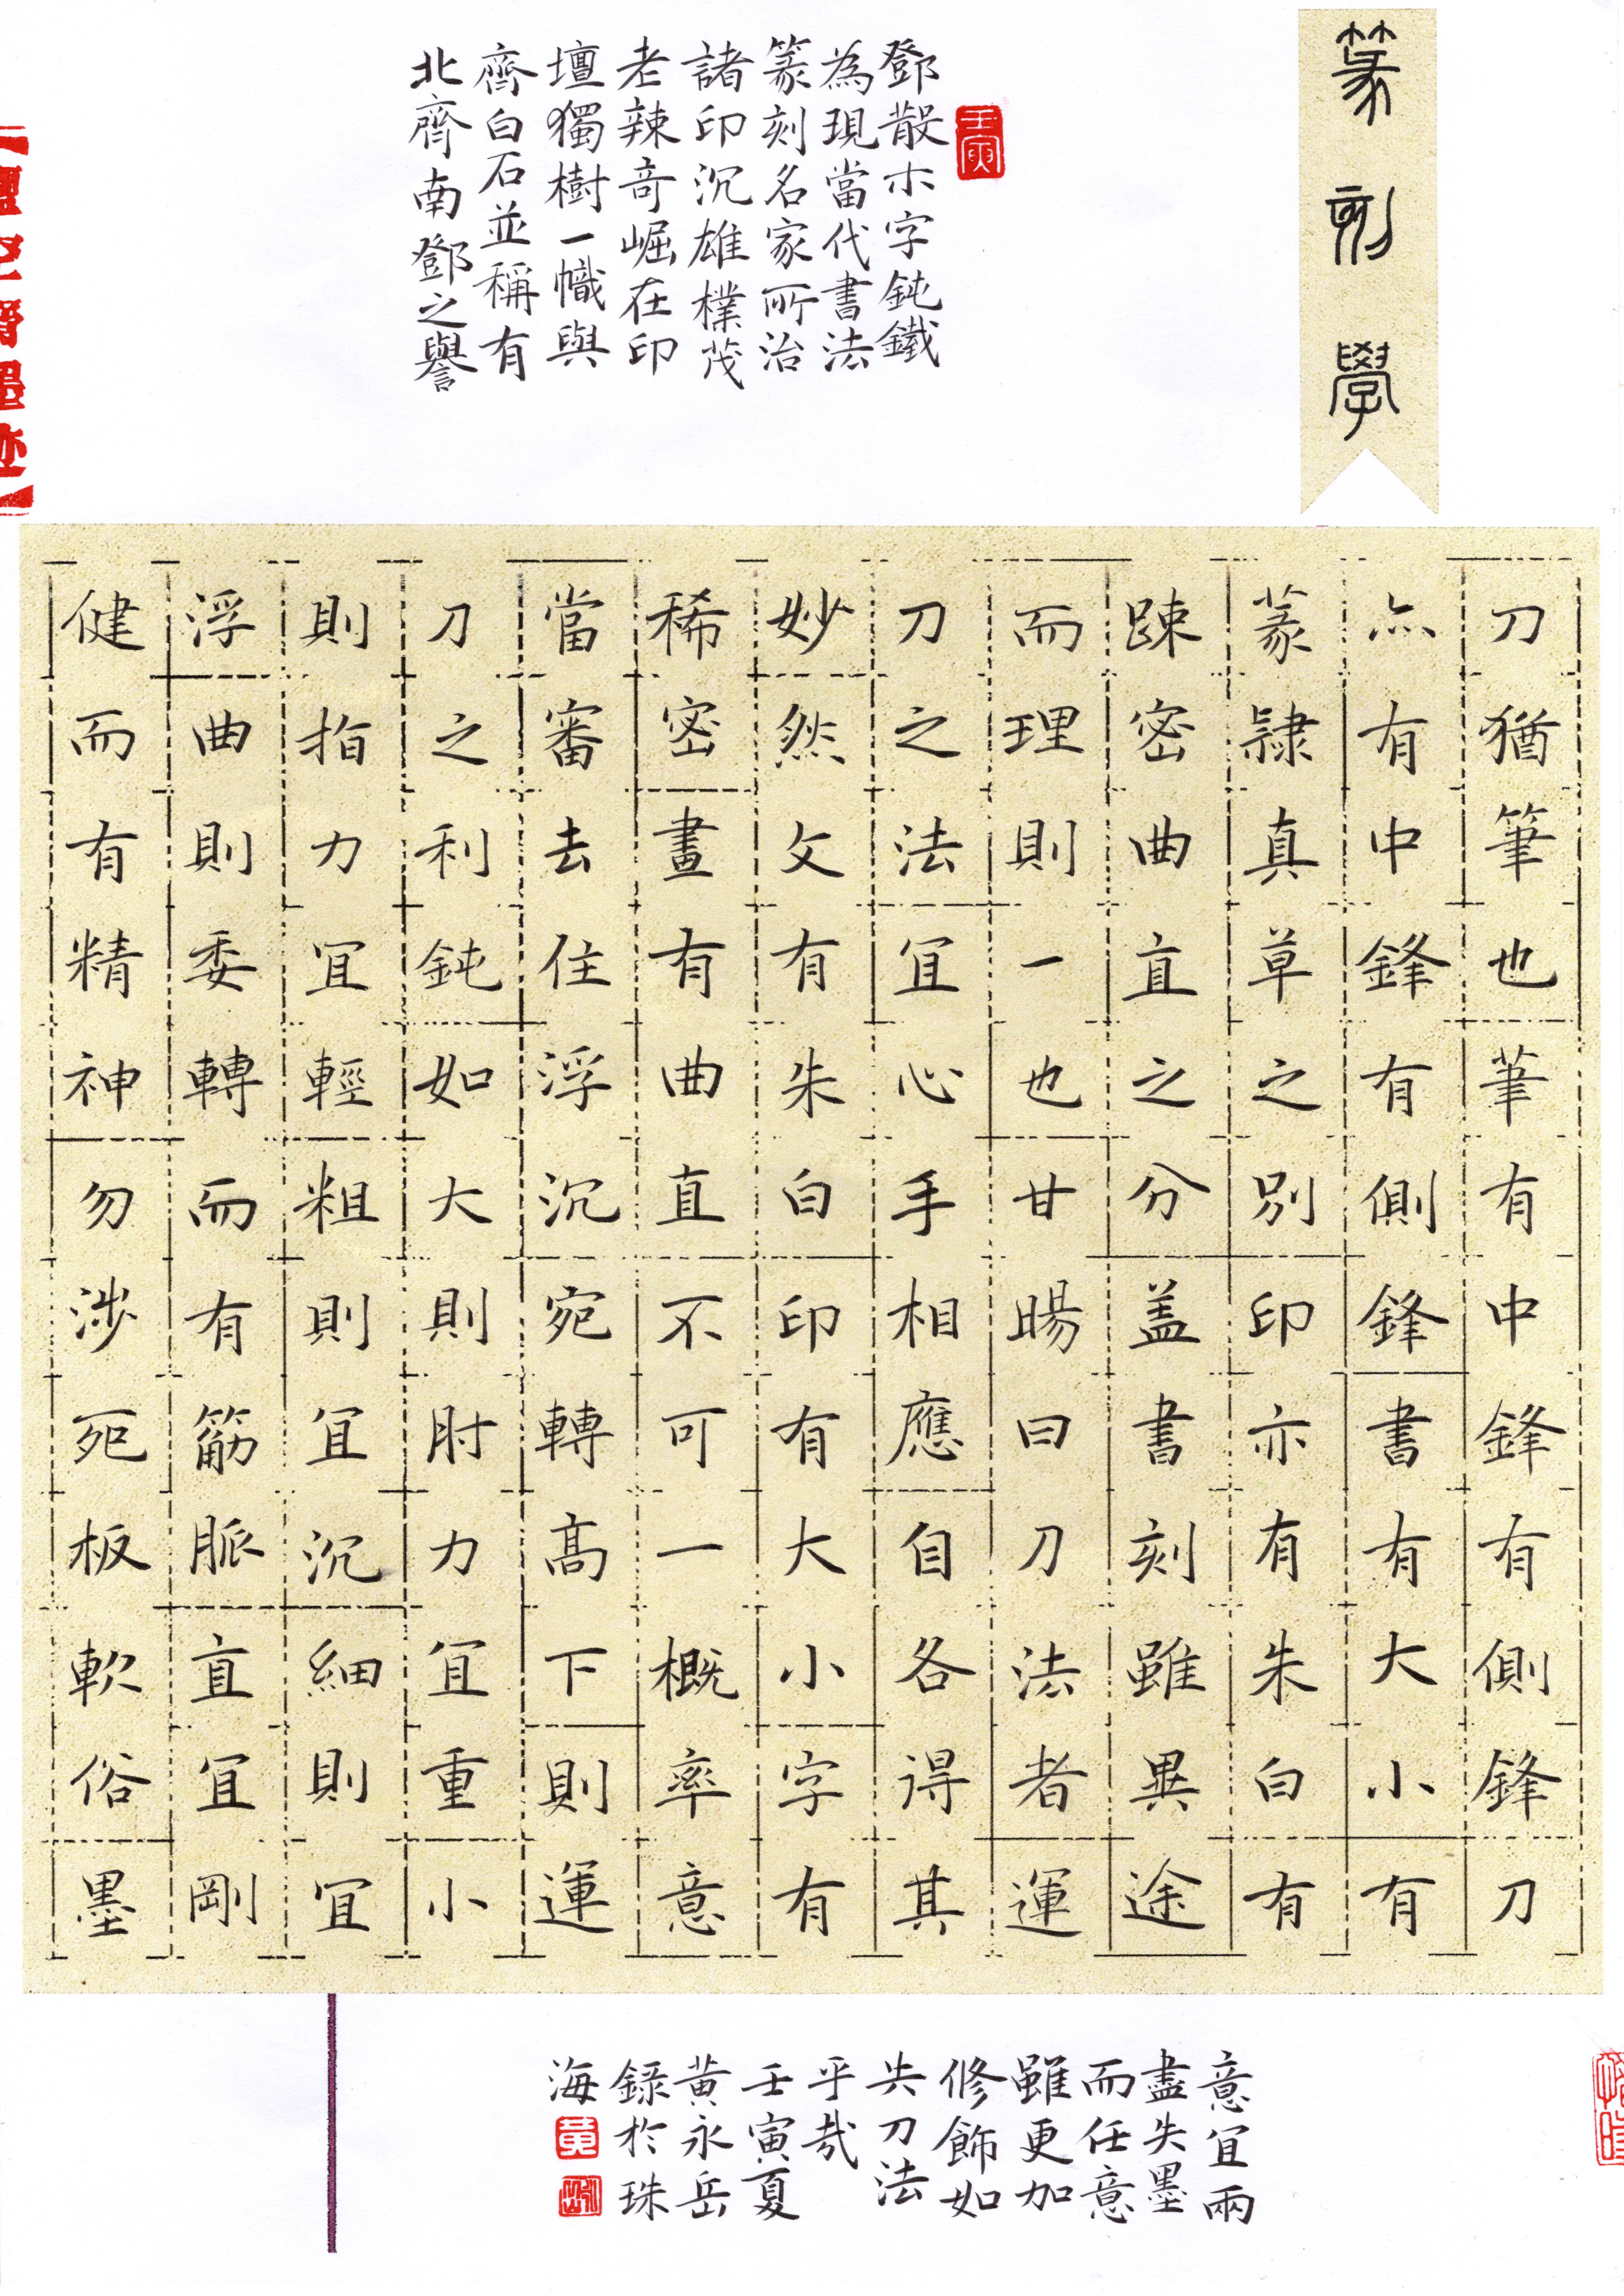 篆刻學
鄧散木字鈍鐵
為現當代書法
篆刻名家所治
諸印沉雄樸茂
老辣奇崛在印
壇獨樹一幟與
齊白石並稱有
北齊南鄧之譽
壬寅
刀猶筆也筆有中鋒有側鋒刀
亦有中鋒有側鋒書有大小有
篆隸真草之別印亦有朱白有
踈密曲直之分盖書刻雖異途
而理則一也甘暘曰刀法者運
刀之法宜心手相應自各得其
妙然文有朱白印有大小字有
稀密畫有曲直不可一概率意
當審去住浮沉宛轉高下則運
刀之利鈍如大則肘力宜重小
則指力宜輕粗則宜沉細則宜
浮曲則委轉而有筋脈直宜剛
健而有精神勿涉死板軟俗墨
意宜兩
盡失墨
而任意
雖更加
修飾如
失刀法
乎哉
壬寅夏
黄永岳
錄於珠
海
黄